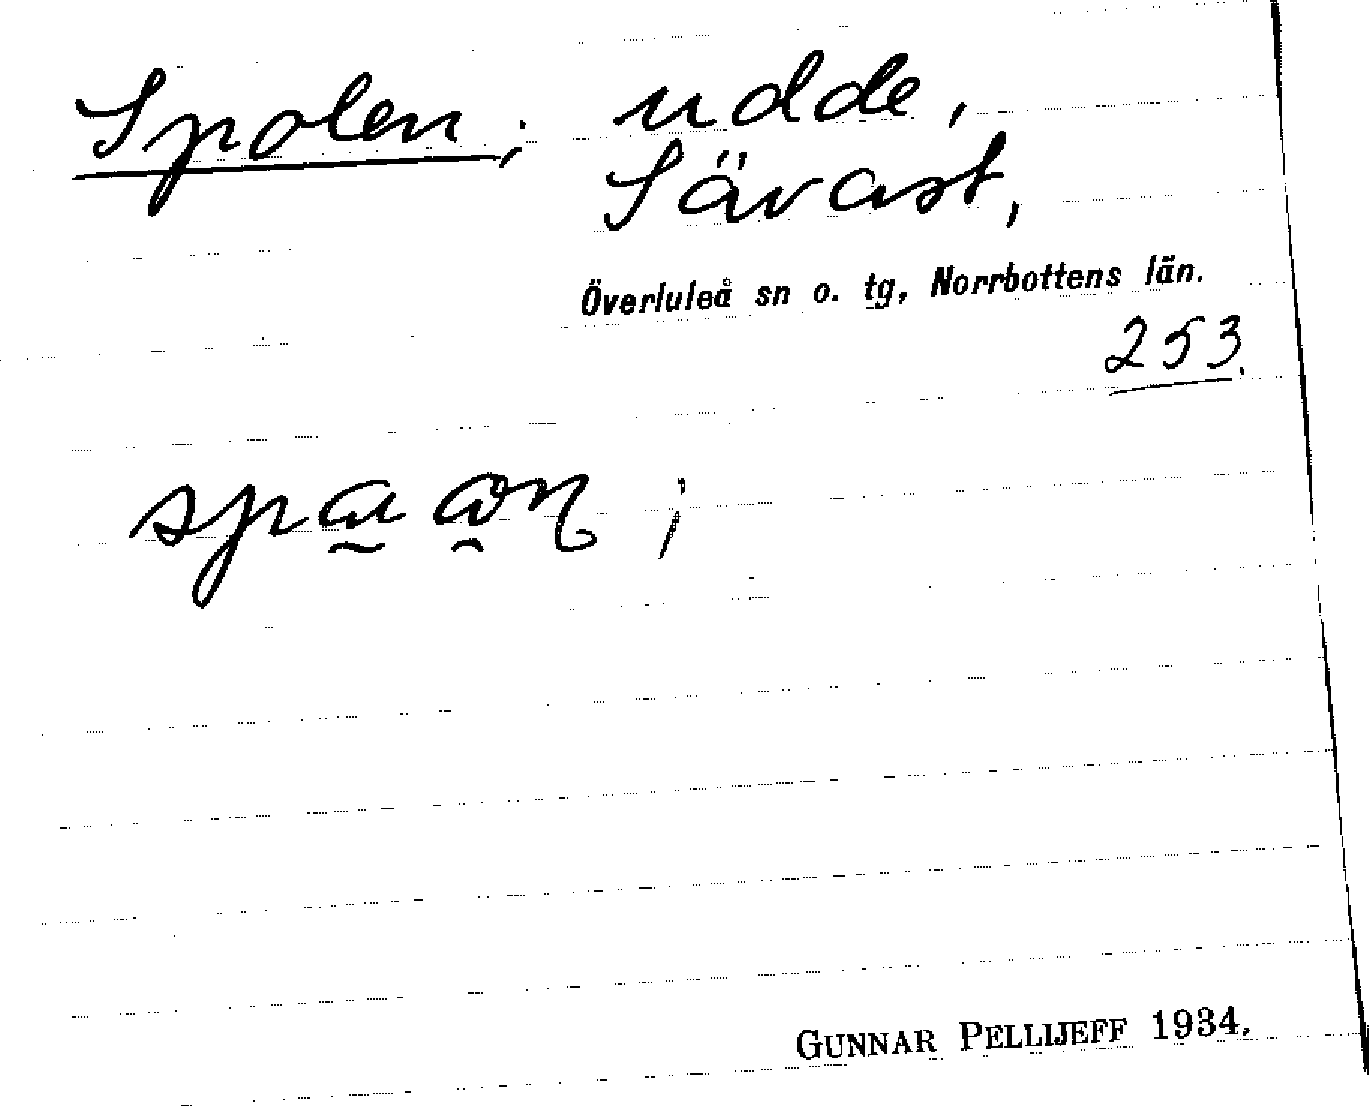 Spolen; udde,
Sävast,
Överluleå sn o. tg, Norrbottens län.
253.
GUNNAR PELLIJEFF 1934.